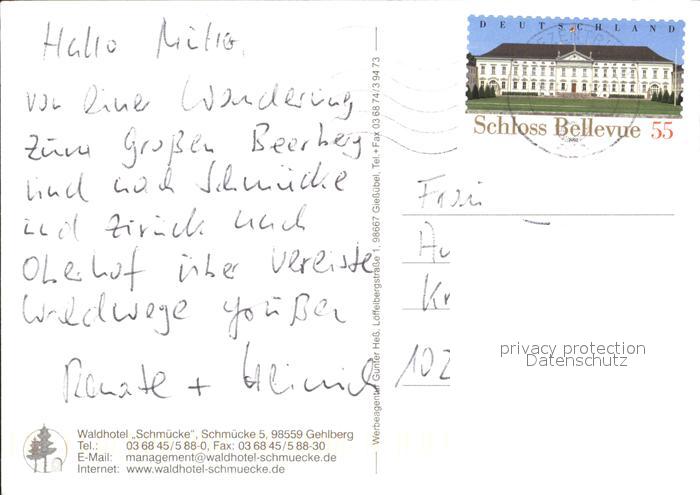 Hallo
von einer Wanderung
zum Großen Beerberg
und nach Schmücke
und zurück nach
Oberhof über vereiste
Waldwege grüßen
Renate + Heinrich
Waldhotel „Schmücke“, Schmücke 5, 98559 Gehlberg
Tel.: 03 68 45/5 88-0, Fax: 03 68 45/5 88-30
E-Mail: management@waldhotel-schmuecke.de
Internet: www.waldhotel-schmuecke.de
Werbeagentur Günter Heß, Löffelbergstraße 1, 98667 Gießübel, Tel.+Fax 03 68 74/3 94 73
DEUTSCHLAND
Schloss Bellevue 55
Frau
Au
Kr
102
privacy protection
Datenschutz